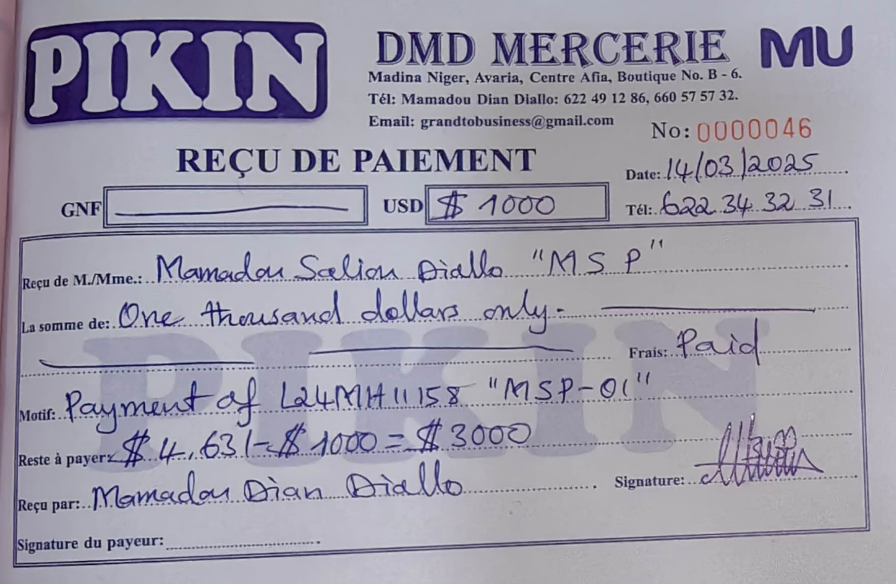 PIKIN
DMD MERCERIE MU
Madina Niger, Avaria, Centre Afia, Boutique No. B - 6.
Tél: Mamadou Dian Diallo: 622 49 12 86, 660 57 57 32.
Email: grandtobusiness@gmail.com
No: 0000046
REÇU DE PAIEMENT
Date: 14/03/2025
GNF USD $ 1000 Tél: 622 34 32 31
Reçu de M./Mme.: Mamadou Saliou Diallo "MSP"
La somme de: One thousand dollars only.
Frais: Paid
Motif: Payment of L24MH11158 "MSP-01"
Reste à payer: $4,631-$1000=$3000
Reçu par: Mamadou Dian Diallo Signature:
Signature du payeur:
PIKIN